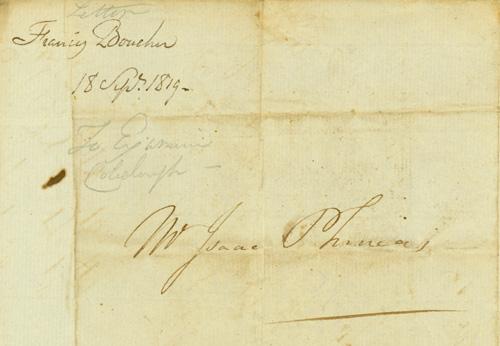 Letter
Francis Boucher
18 Sept. 1819-
To
Mr Isaac Phineas